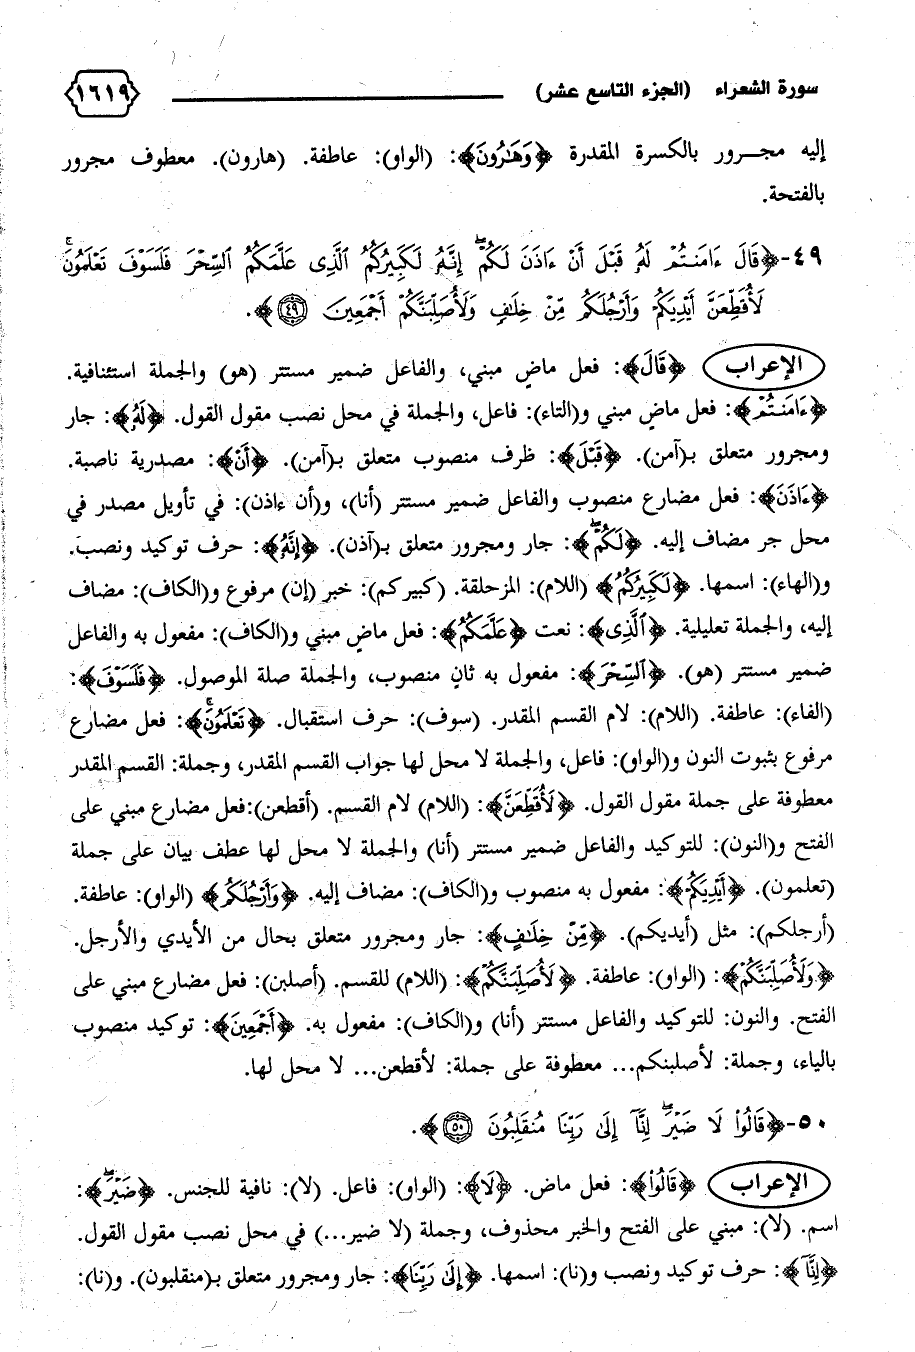 سورة الشعراء (الجزء التاسع عشر) ١٦١٩
إليه مجرور بالكسرة المقدرة ﴿وَهَٰرُونَ﴾: (الواو): عاطفة. (هارون). معطوف مجرور
بالفتحة.
٤٩-﴿قَالَ ءَامَنتُمْ لَهُۥ قَبْلَ أَنْ ءَاذَنَ لَكُمْ ۖ إِنَّهُۥ لَكَبِيرُكُمُ ٱلَّذِى عَلَّمَكُمُ ٱلسِّحْرَ فَلَسَوْفَ تَعْلَمُونَ ۚ
لَأُقَطِّعَنَّ أَيْدِيَكُمْ وَأَرْجُلَكُم مِّنْ خِلَٰفٍ وَلَأُصَلِّبَنَّكُمْ أَجْمَعِينَ ٤٩﴾.
الإعراب ﴿قَالَ﴾: فعل ماضٍ مبني، والفاعل ضمير مستتر (هو) والجملة استئنافية.
﴿ءَامَنتُمْ﴾: فعل ماضٍ مبني و(التاء): فاعل، والجملة في محل نصب مقول القول. ﴿لَهُۥ﴾: جار
ومجرور متعلق بـ(آمن). ﴿قَبْلَ﴾: ظرف منصوب متعلق بـ(آمن). ﴿أَنْ﴾: مصدرية ناصبة.
﴿ءَاذَنَ﴾: فعل مضارع منصوب والفاعل ضمير مستتر (أنا)، و(أن ءاذن): في تأويل مصدر في
محل جر مضاف إليه. ﴿لَكُمْ ۖ﴾: جار ومجرور متعلق بـ(آذن). ﴿إِنَّهُۥ﴾: حرف توكيد ونصب.
و(الهاء): اسمها. ﴿لَكَبِيرُكُمُ﴾ (اللام): المزحلقة. (كبيركم): خبر (إن) مرفوع و(الكاف): مضاف
إليه، والجملة تعليلية. ﴿ٱلَّذِى﴾: نعت ﴿عَلَّمَكُمُ﴾: فعل ماضٍ مبني و(الكاف): مفعول به والفاعل
ضمير مستتر (هو). ﴿ٱلسِّحْرَ﴾: مفعول به ثانٍ منصوب، والجملة صلة الموصول. ﴿فَلَسَوْفَ﴾:
(الفاء): عاطفة. (اللام): لام القسم المقدر. (سوف): حرف استقبال. ﴿تَعْلَمُونَ ۚ﴾: فعل مضارع
مرفوع بثبوت النون و(الواو): فاعل، والجملة لا محل لها جواب القسم المقدر، وجملة: القسم المقدر
معطوفة على جملة مقول القول. ﴿لَأُقَطِّعَنَّ﴾: (اللام) لام القسم. (أقطعن):فعل مضارع مبني على
الفتح و(النون): للتوكيد والفاعل ضمير مستتر (أنا) والجملة لا محل لها عطف بيان على جملة
(تعلمون). ﴿أَيْدِيَكُمْ﴾: مفعول به منصوب و(الكاف): مضاف إليه. ﴿وَأَرْجُلَكُم﴾ (الواو): عاطفة.
(أرجلكم): مثل (أيديكم). ﴿مِّنْ خِلَٰفٍ﴾: جار ومجرور متعلق بحال من الأيدي والأرجل.
﴿وَلَأُصَلِّبَنَّكُمْ﴾: (الواو): عاطفة. ﴿لَأُصَلِّبَنَّكُمْ﴾: (اللام) للقسم. (أصلبن): فعل مضارع مبني على
الفتح. والنون: للتوكيد والفاعل مستتر (أنا) و(الكاف): مفعول به. ﴿أَجْمَعِينَ﴾: توكيد منصوب
بالياء، وجملة: لأصلبنكم... معطوفة على جملة: لأقطعن... لا محل لها.
٥٠-﴿قَالُوا۟ لَا ضَيْرَ ۖ إِنَّآ إِلَىٰ رَبِّنَا مُنقَلِبُونَ ٥٠﴾.
الإعراب ﴿قَالُوا۟﴾: فعل ماض. ﴿لَا﴾: (الواو): فاعل. (لا): نافية للجنس. ﴿ضَيْرَ ۖ﴾:
اسم. (لا): مبني على الفتح والخبر محذوف، وجملة (لا ضير...) في محل نصب مقول القول.
﴿إِنَّآ﴾: حرف توكيد ونصب و(نا): اسمها. ﴿إِلَىٰ رَبِّنَا﴾: جار ومجرور متعلق بـ(منقلبون). و(نا):